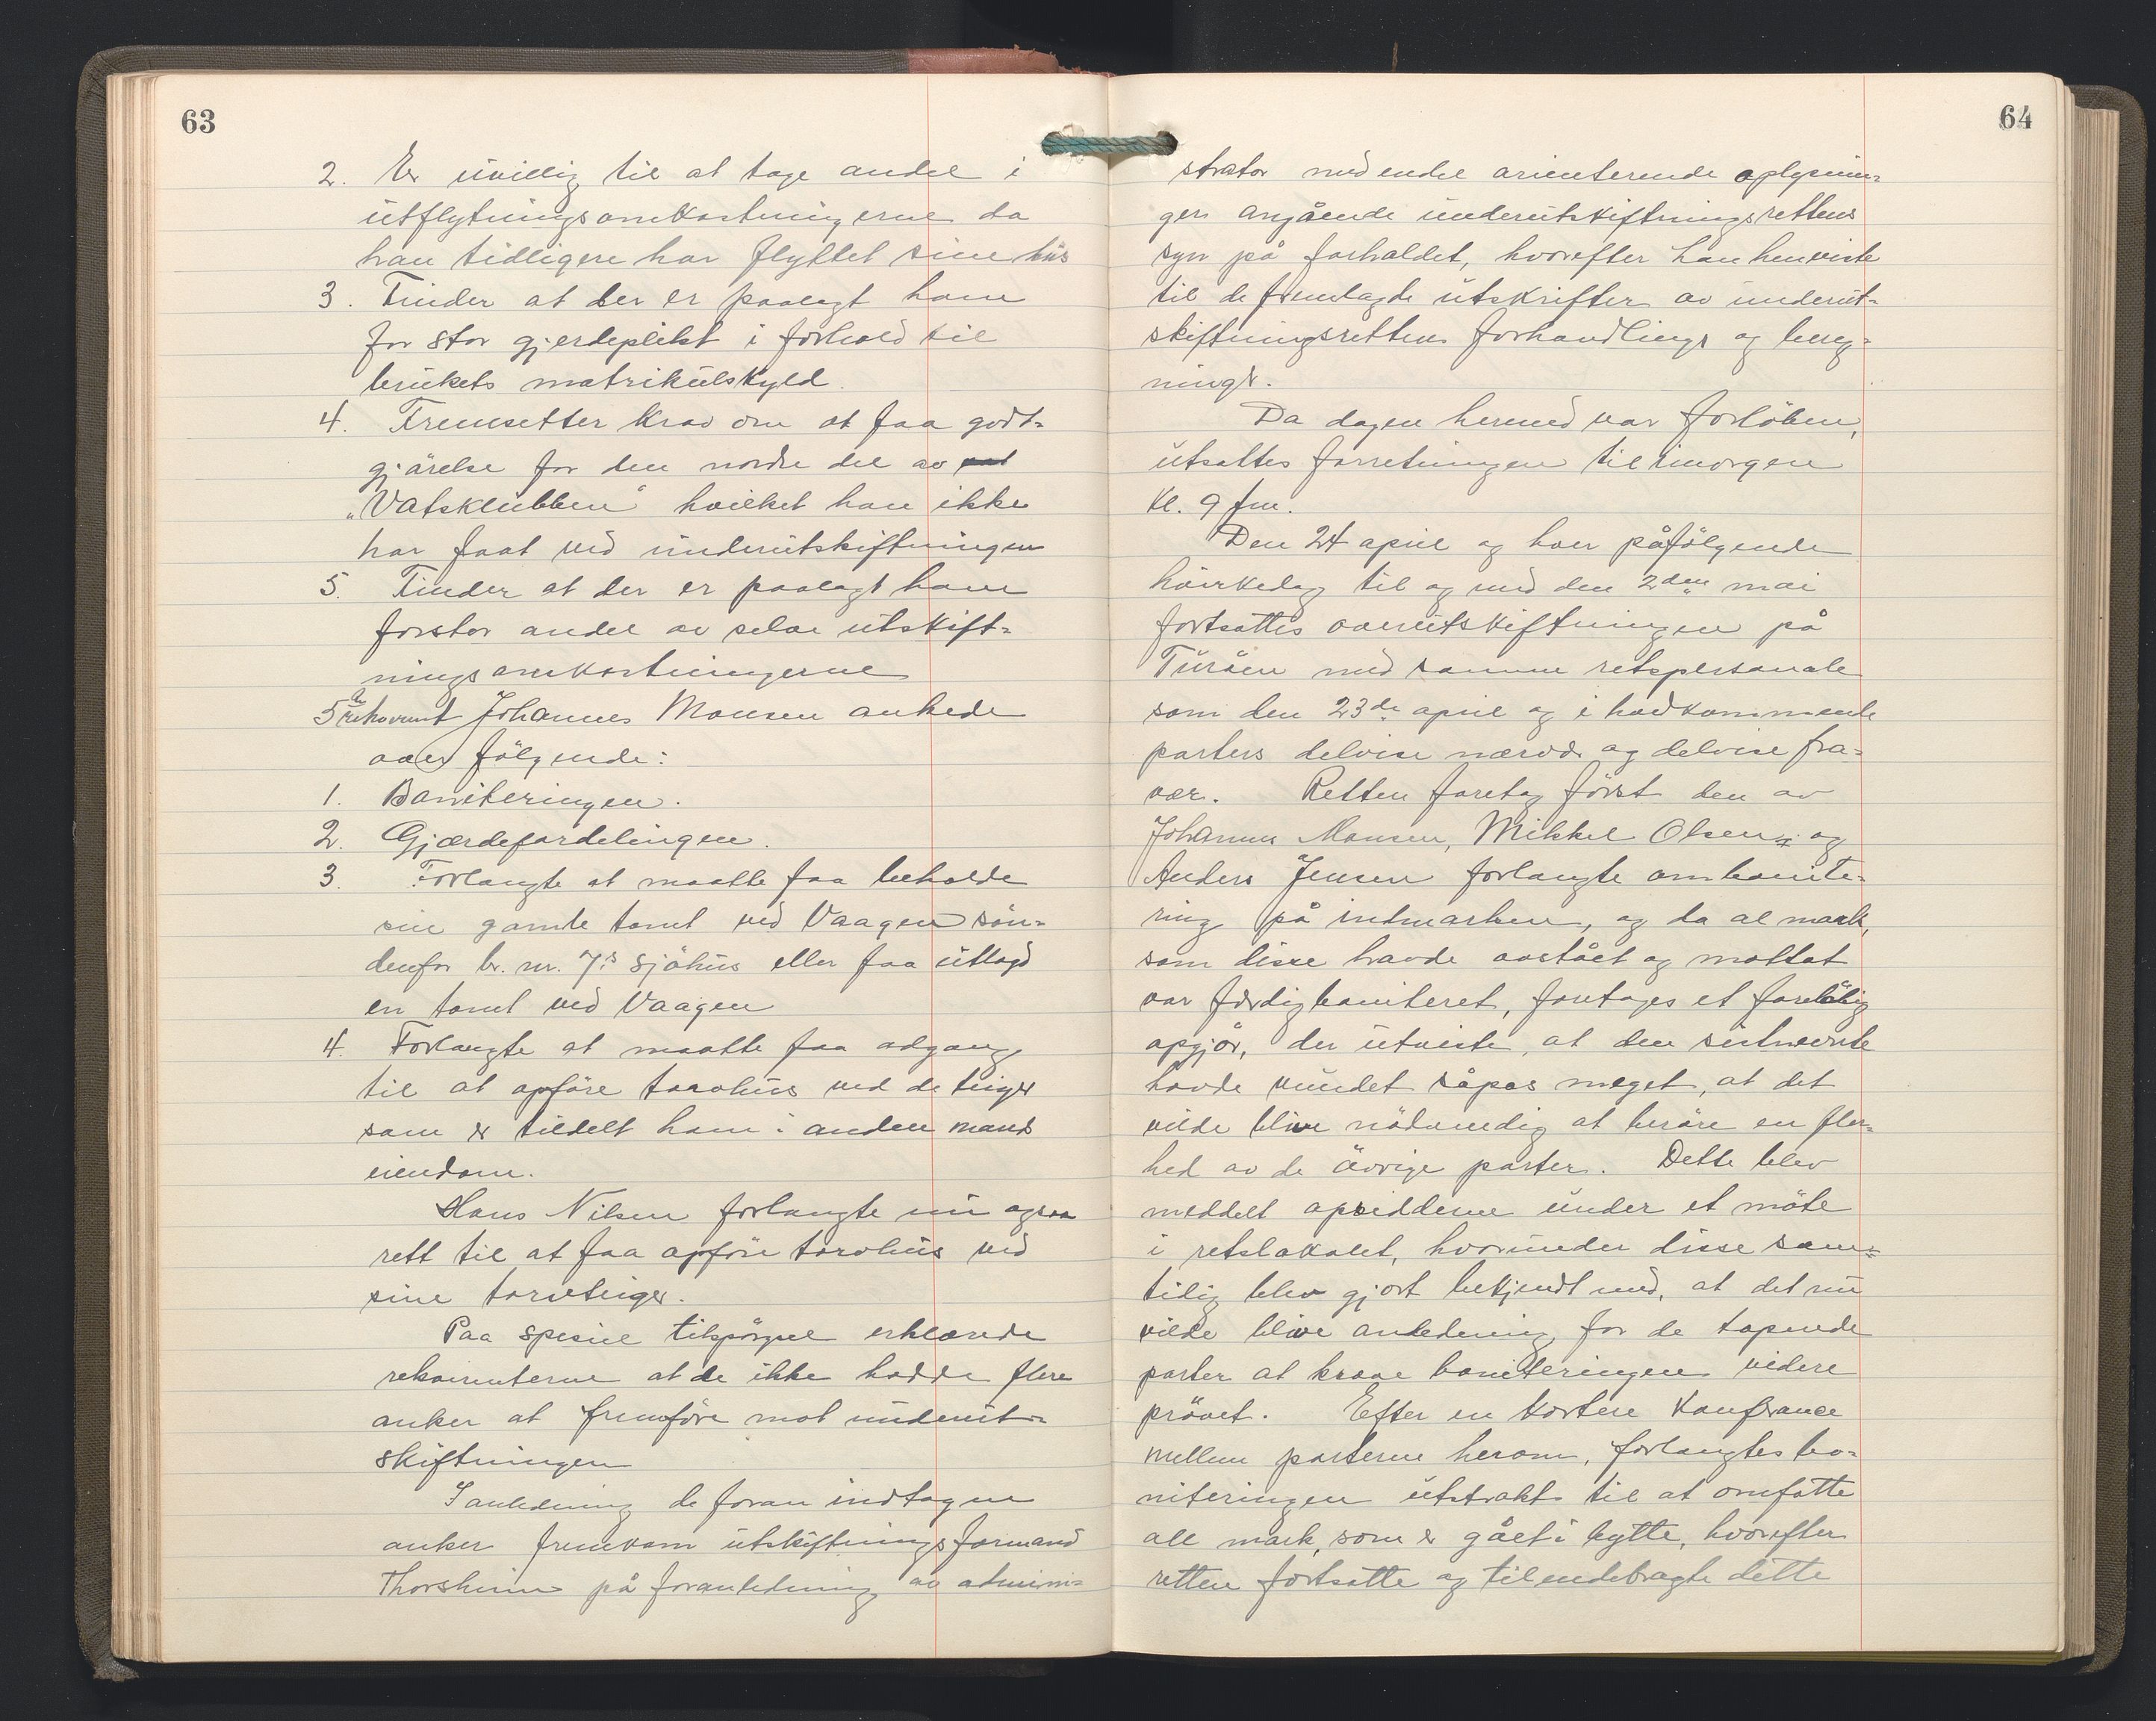 63
2. Er uvillig til at tage andel i
utflytningsomkostningerne da
han tidligere har flyttet sine hus
3. Finder at der er paalagt ham
for stor gjerdeplikt i forhold til
brukets matrikulskyld.
4. Fremsetter krav om at faa godt-
gjørelse for den nordre del av
"Vatsklubben" hvilket han ikke
har faat ved underutskiftningen
5. Finder at der er paalagt ham
forstor andel av selve utskift-
ningsomkostningerne
Johannes Monsen ankede
over følgende:
1. Boniteringen.
2. Gjærdefordelingen.
3. Forlangte at maatte faa beholde
sin gamle tomt ved Vaagen søn-
denfor br. nr. 7s sjøhus eller faa utlagd
en tomt ved Vaagen
4. Forlangte at maatte faa adgang
til at opføre torvhus ved de teiger
som er tildelt ham i anden mands
eiendom.
Hans Nilsen forlangte nu ogsaa
rett til at faa opføre torvhus ved
sine torvteiger.
Paa spesiel tilspørgsel erklærede
rekvirenterne at de ikke hadde flere
anker at fremføre mot underut-
skiftningen
I anledning de foran indtagne
anker fremkom utskiftningsformand
Thorsheim på foranledning av admini-
64
strator med endel orienterende oplysnin-
ger angående underutskiftningsrettens
syn på forholdet, hvorefter han henviste
til de fremlagde utskrifter av underut-
skiftningsrettens forhandlinger og bereg-
ninger.
Da dagen hermed var forløben,
utsattes forretningen til imorgen
kl. 9 fm.
Den 24 april og hver påfølgende
hvirkedag til og med den 2den mai
fortsattes overutskiftningen på
Turøen med samme retspersonale
som den 23de april og i hvedkommende
parters delvise nærvær og delvise fra-
vær. Retten foretog først den av
Johannes Monsen, Mikkel Olsen og
Anders Jensen forlangte ombonite-
ring på indmarken, og da al mark,
som disse havde avstået og mottat
var færdigboniteret, foretoges et foreløbig
opgjør, der utviste, at den sistnevnte
havde vundet såpas meget, at det
vilde blive nødvendig at berøre en fler-
hed av de øvrige parter. Dette blev
meddelt opsidderne under et møte
i retslokalet, hvorunder disse sam-
tidig blev gjort bekjendt med, at det nu
vilde blive anledning for de tapende
parter at kræve boniteringen videre
prøvet. Efter en kortere konferance
mellem parterne herom, forlangtes bo-
niteringen utstrakt til at omfatte
all mark, som er gået i bytte, hvorefter
retten fortsatte og tilendebragte dette